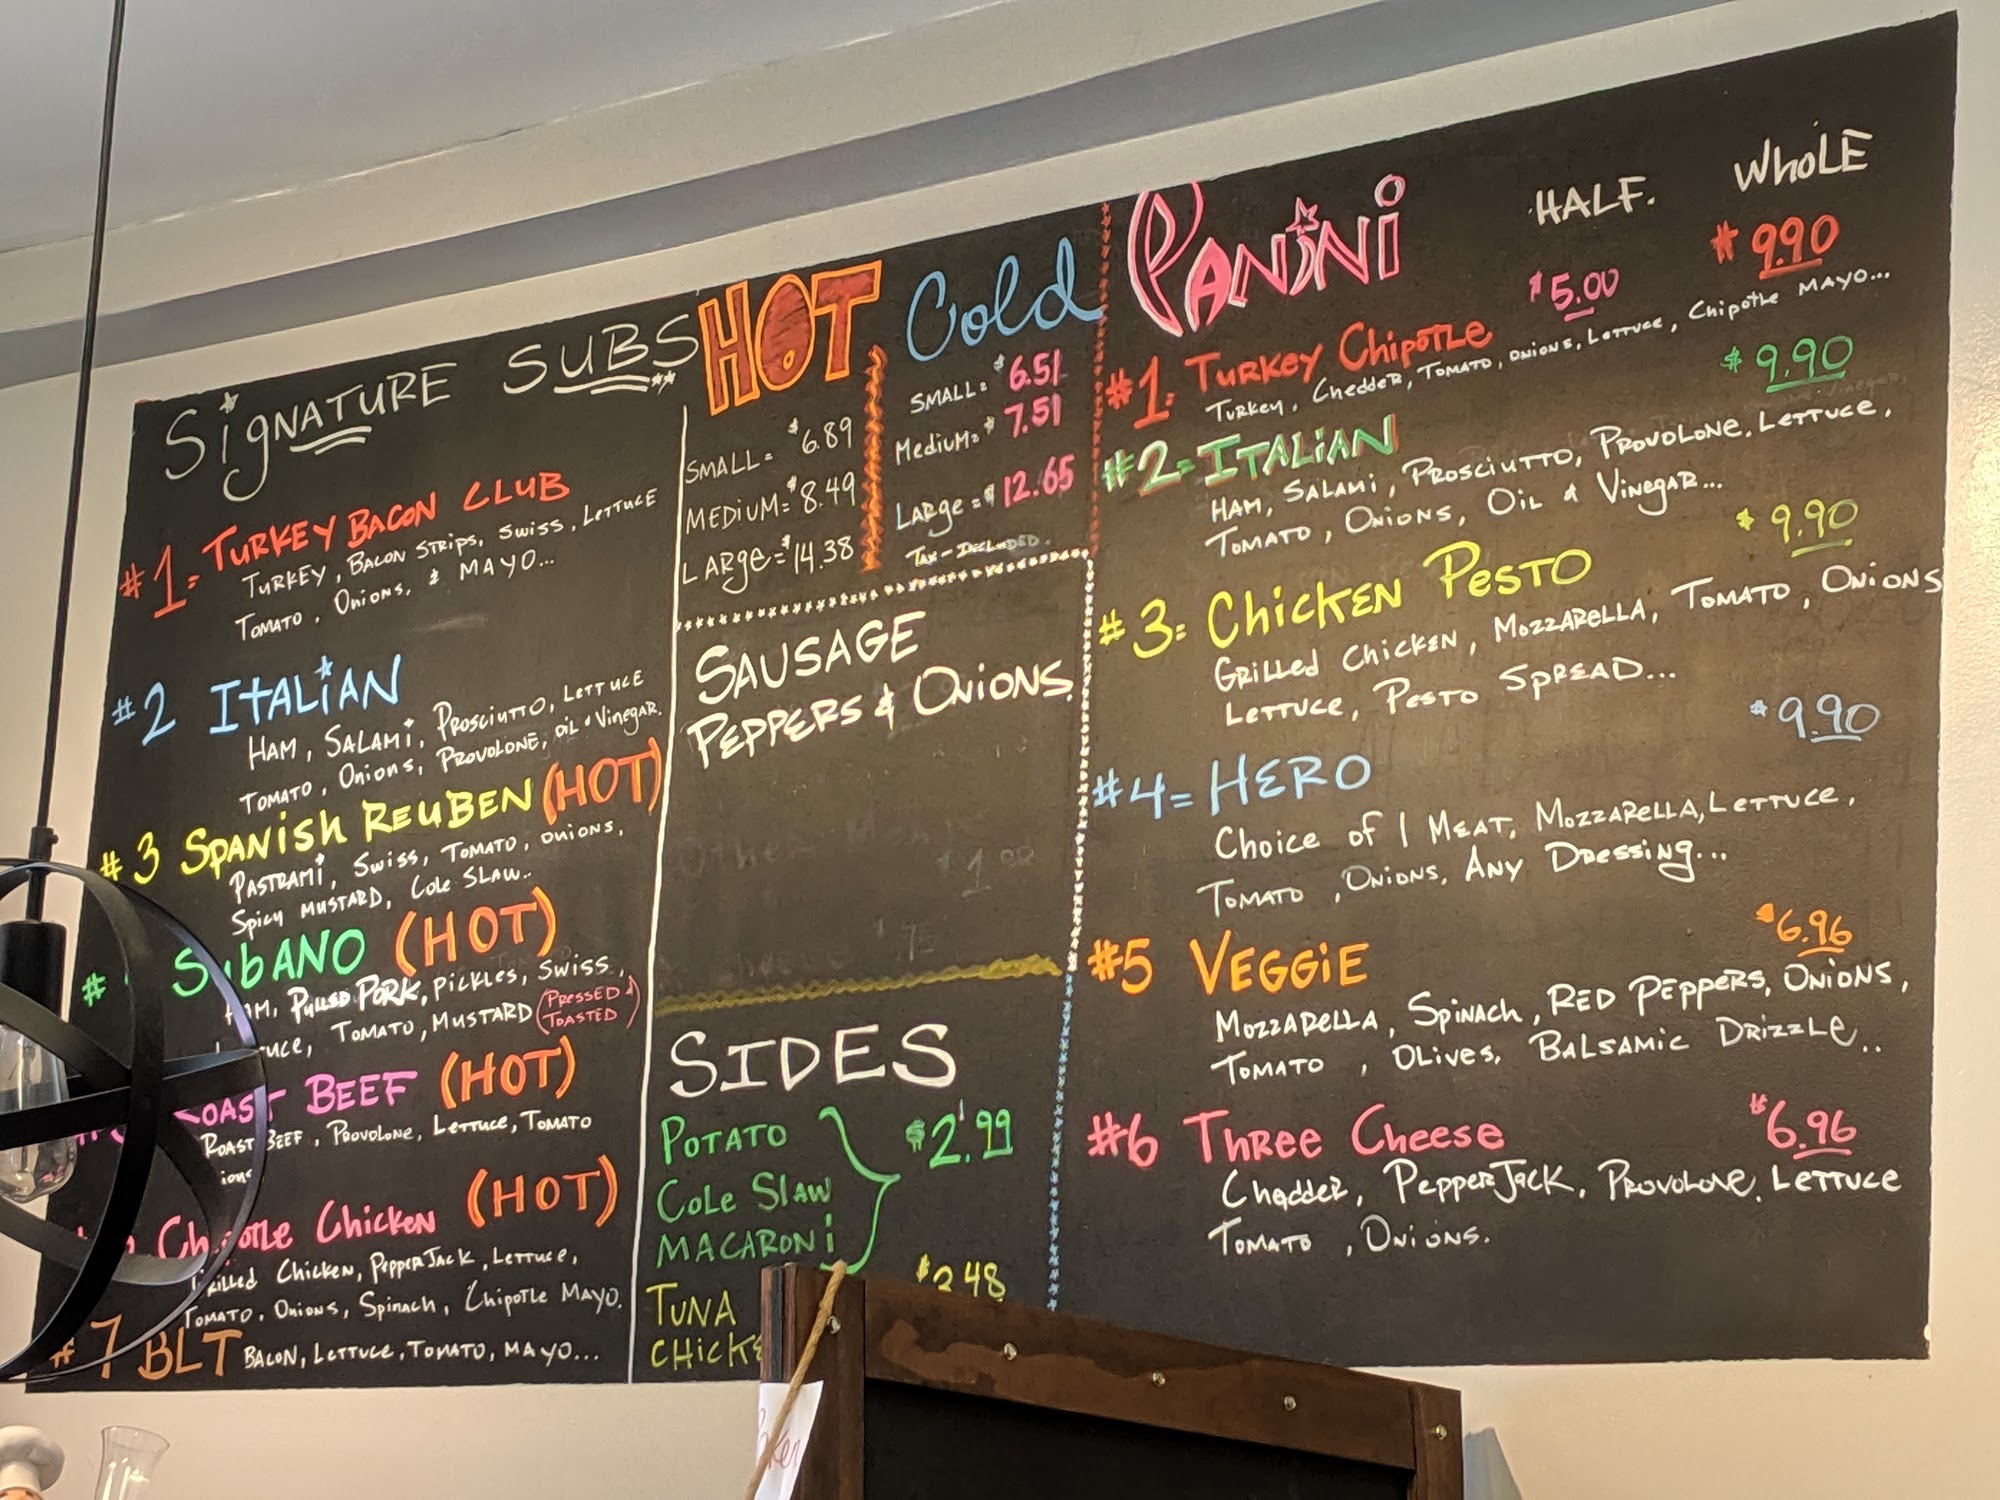 Signature SUBS
#1= TURKEY BACON CLUB
TURKEY, BACON STRIPS, SWISS, LETTUCE
TOMATO, Onions, & MAYO...
#2 ITALiAN
HAM, SALAMi, PROSCIUTTO, LETTUCE
TOMATO, Onions, PROVOLONE, OiL & Vinegar.
#3 SPANiSh REUBEN (HOT)
PASTRAMi, SWiSS, TOMATO, ONiONS,
Spicy MUSTARD, Cole SLAW..
# SubANO (HOT)
HAM, PULLED PORK, PiCKLES, SWiSS,
TOMATO, MUSTARD (PRESSED &
TOASTED)
ROAST BEEF (HOT)
ROAST BEEF, PROVOLONE, LETTUCE, TOMATO
Chipotle Chicken (HOT)
Grilled Chicken, PEPPERJACK, LETTUCE,
TOMATO, Onions, Spinach, Chipotle MAYO.
#7 BLT BACON, LETTUCE, TOMATO, MAYO...
HOT
SMALL= $6.89
MEDIUM= $8.49
LARge= $14.38
Cold
SMALL= $6.51
MediuM= $7.51
LARge= $12.65
TAX-INCLUDED.
SAUSAGE
PEPPERS & ONiONS.
SIDES
POTATO
COLE SLAW $2.99
MACARONi
TUNA $3.48
PANiNi HALF. WhoLE
#1= TURKEY ChipOTLE $5.00 $9.90
TURKEY, CheddER, TOMATO, ONIONS, LETTUCE, ChipOTLE MAYO...
#2= ITALiAN $9.90
HAM, SALAMi, PROSCIUTTO, PROVOLONE, LETTUCE,
TOMATO, ONiONS, OiL & VinegAR...
#3= ChiCKEN PESTO $9.90
GRilled ChiCKEN, MOZZARELLA, TOMATO, ONiONS
LETTUCE, PESTO SPREAD...
#4= HERO $9.90
Choice of 1 MEAT, MOZZARELLA, LETTUCE,
TOMATO, ONiONS, ANY DRESSiNG...
#5 VEGGiE $6.96
MOZZARELLA, SpiNACh, RED PEPPERS, ONiONS,
TOMATO, OLiVES, BALSAMiC DRiZZLE..
#6 THREE Cheese $6.96
Chedder, PEPPERJACK, PROVOLONE, LETTUCE
TOMATO, ONiONS.